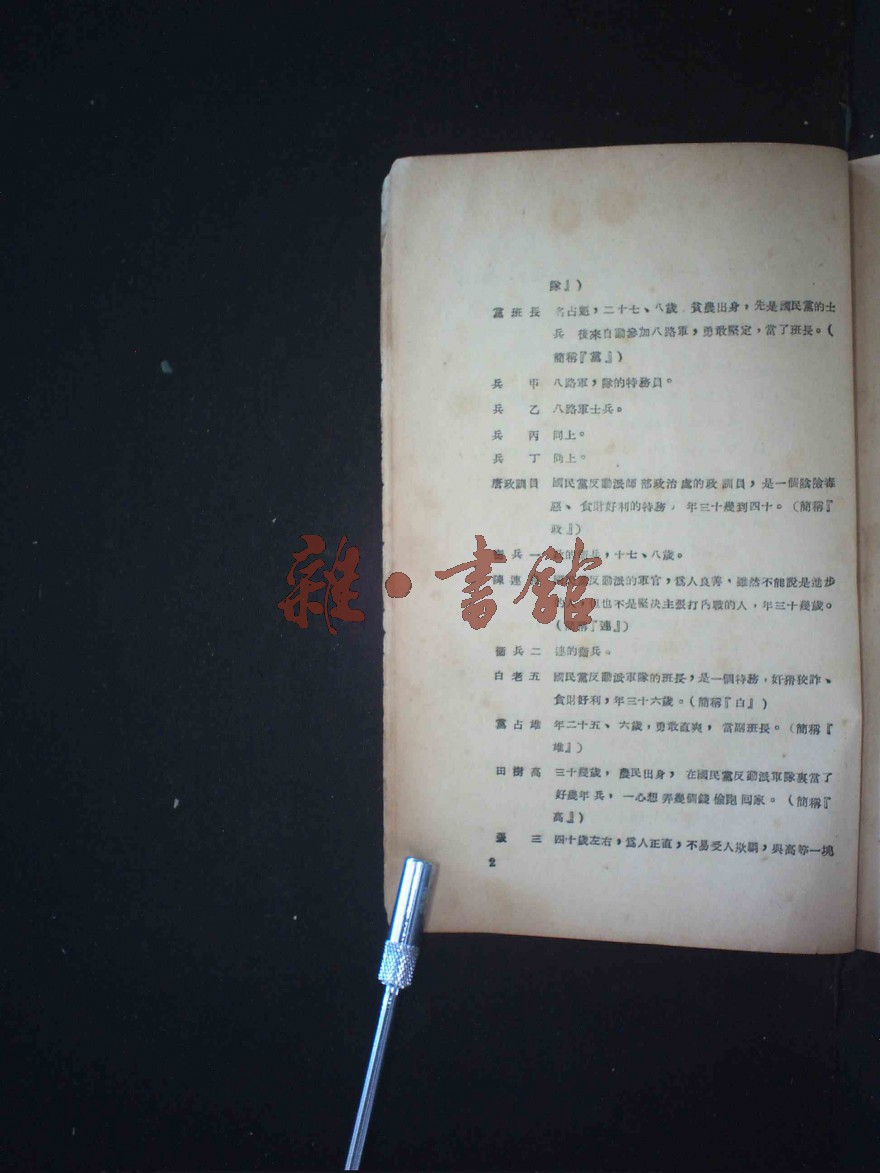 隊』)
黨班長 名占魁，二十七、八歲 貧農出身，先是國民黨的士
兵 後來自動參加八路軍，勇敢堅定，當了班長。(
簡稱『黨』)
兵 甲 八路軍，隊的特務員。
兵 乙 八路軍士兵。
兵 丙 同上。
兵 丁 同上。
唐政訓員 國民黨反動派師部政治處的政訓員，是一個陰險毒
惡、貪財好利的特務，年三十幾到四十。(簡稱『
政』)
衞兵一 政的衞兵，十七、八歲。
陳連長 國民黨反動派的軍官，爲人良善，雖然不能說是進步
的人，但也不是堅決主張打內戰的人，年三十幾歲。
(簡稱『連』)
衞兵二 連的衞兵。
白老五 國民黨反動派軍隊的班長，是一個特務，奸猾狡詐、
貪財好利，年三十六歲。(簡稱『白』)
黨占雄 年二十五、六歲，勇敢直爽，當副班長。(簡稱『
雄』)
田樹高 三十幾歲，農民出身，在國民黨反動派軍隊裏當了
好幾年兵，一心想弄幾個錢偷跑囘家。(簡稱『
高』)
張 三 四十歲左右，爲人正直，不易受人欺騙，與高等一塊
2
雜·書館